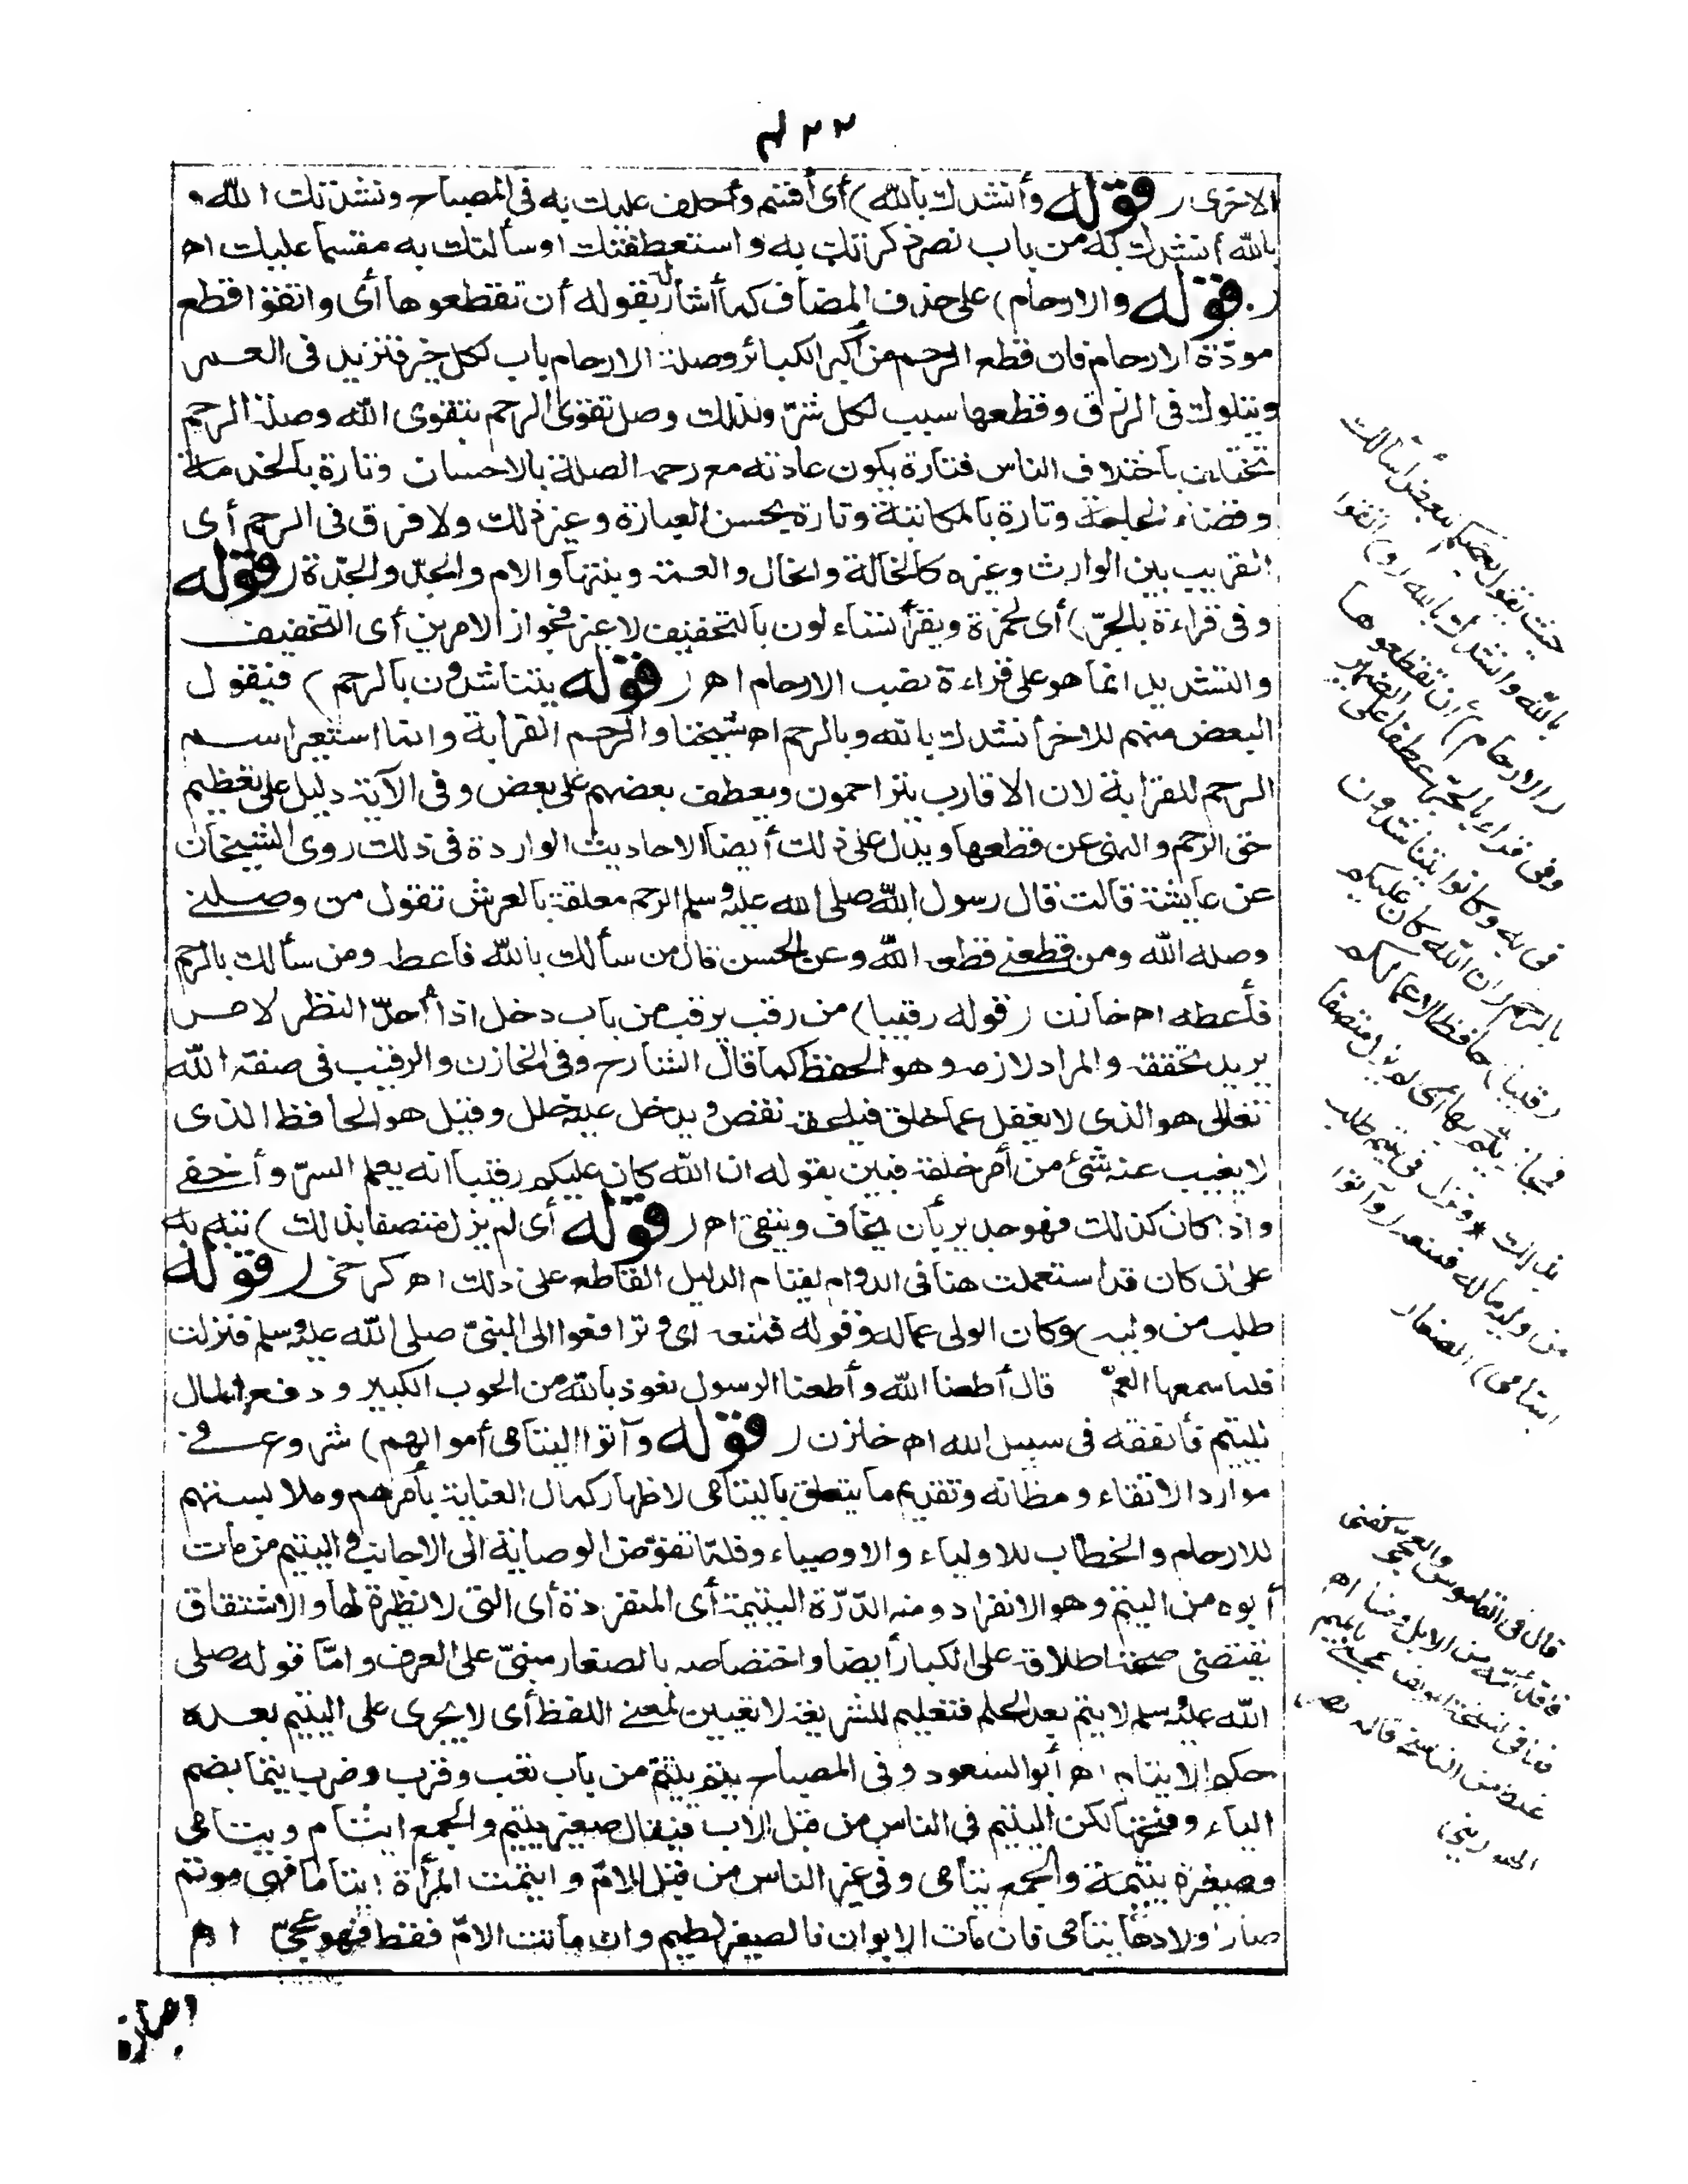 ٤٢٢
الاخرى (قوله وأنشدك بالله) أى أقسم وأحلف عليك به فى المصباح ونشدتك الله و
بالله أنشدك به من باب نصر ذكرتك به واستعطفتك او سألتك به مقسما عليك اه
(قوله والارحام) على حذف المضاف كما أشار له بقوله أن تقطعوها أى واتقوا قطع
مودّة الارحام فان قطع الرحم من أكبر الكبائر وصلة الارحام باب لكل خير فتزيد فى العمر
وتبارك فى الرزق وقطعها سبب لكل شرّ ولذلك وصل تقوى الرحم بتقوى الله وصلة الرحم
تختلف باختلاف الناس فتارة يكون عادته مع رحمه الصلة بالاحسان وتارة بالخدمة
وقضاء الحاجة وتارة بالمكاتبة وتارة بحسن العبارة وغير ذلك ولا فرق فى الرحم أى
القريب بين الوارث وغيره كالخالة والخال والعمة وبنتها والام والجدّ والجدّة (قوله
وفى قراءة بالجرّ) أى لحمزة ويقرأ تساءلون بالتخفيف لا غير فجواز الامرين أى التخفيف
والتشديد انما هو على قراءة نصب الارحام اه (قوله يتناشدون بالرحم) فيقول
البعض منهم للاخر أنشدك بالله وبالرحم اه شيخنا والرحم القرابة وانما استعير اسم
الرحم للقرابة لان الاقارب يتراحمون ويعطف بعضهم على بعض وفى الآية دليل على تعظيم
حق الرحم والنهى عن قطعها ويدل على ذلك أيضا الاحاديث الواردة فى ذلك روى الشيخان
عن عايشة قالت قال رسول الله صلى الله عليه وسلم الرحم معلقة بالعرش تقول من وصلنى
وصله الله ومن قطعنى قطعه الله وعن الحسن قال من سألك بالله فاعطه ومن سألك بالرحم
فأعطه اه خازن (قوله رقيبا) من رقب يرقب من باب دخل اذا أحدّ النظر لامر
يريد تحققه والمراد لازمه وهو الحفظ كما قال الشارح وفى الخازن والرقيب فى صفة الله
تعالى هو الذى لا يغفل عما خلق فيلحقه نقص ويدخل عليه خلل وقيل هو الحافظ الذى
لا يغيب عنه شئ من أمر خلقه فبين بقوله ان الله كان عليكم رقيبا انه يعلم السرّ وأخفى
واذا كان كذلك فهو جدير بأن يخاف ويتقى اه (قوله أى لم يزل متصفا بذلك) نبه به
على ان كان قد استعملت هنا فى الدوام لقيام الدليل القاطع على ذلك اه كرخى (قوله
طلب من وليه) وكان الولى عما له وقوله فمنعه أى وترافعوا الى النبىّ صلى الله عليه وسلم فنزلت
فلما سمعها العمّ قال أطعنا الله وأطعنا الرسول نعوذ بالله من الحوب الكبير ودفع المال
لليتيم فأنفقه فى سبيل الله اه خازن (قوله وآتوا اليتامى أموالهم) شروع فى
موارد الاتقاء ومظانه وتقديم ما يتعلق باليتامى لاظهار كمال العناية بأمرهم وملابستهم
للارحام والخطاب للاولياء والاوصياء وقلما تفوّض الوصاية الى الاجانب واليتيم من مات
أبوه من اليتم وهو الانفراد ومنه الدّرّة اليتيمة أى المنفردة أى التى لا نظيرة لها والاشتقاق
يقتضى صحة اطلاقه على الكبار أيضا واختصاصه بالصغار مبنىّ على العرف وامّا قوله صلى
الله عليه وسلم لا يتم بعد الحلم فتعليم للشريعة لا تعيين لمعنى اللفظ أى لا يجرى على اليتيم بعده
حكم الايتام اه أبو السعود وفى المصباح يتم ييتم من باب تعب وقرب وضرب يتما بضم
الياء وفتحها لكن اليتيم فى الناس من قبل الاب فيقال صغير يتيم والجمع ايتام ويتامى
وصغيرة يتيمة والجمع يتامى وفى غير الناس من قبل الامّ وايتمت المرأة ايتاما فهى موتم
صار اولادها يتامى فان مات الابوان فالصغير لطيم وان ماتت الامّ فقط فهو عجىّ اه
حيث يقول بعضكم لبعض أسألك
بالله وانشدك بالله (و) اتقوا
(الارحام) ان تقطعوها
وفى قراءة بالجر عطفا على الضمير
فى به وكانوا يتناشدون
بالرحم (ان الله كان عليكم
رقيبا) حافظا لاعمالكم
فيجازيكم بها أى لم يزل متصفا
بذلك * ونزل فى يتيم طلب
من وليه ماله فمنعه (وآتوا
اليتامى) الصغار
قال فى القاموس والعجىّ كغنى
فاقد أمّه من الابل ومنا اه